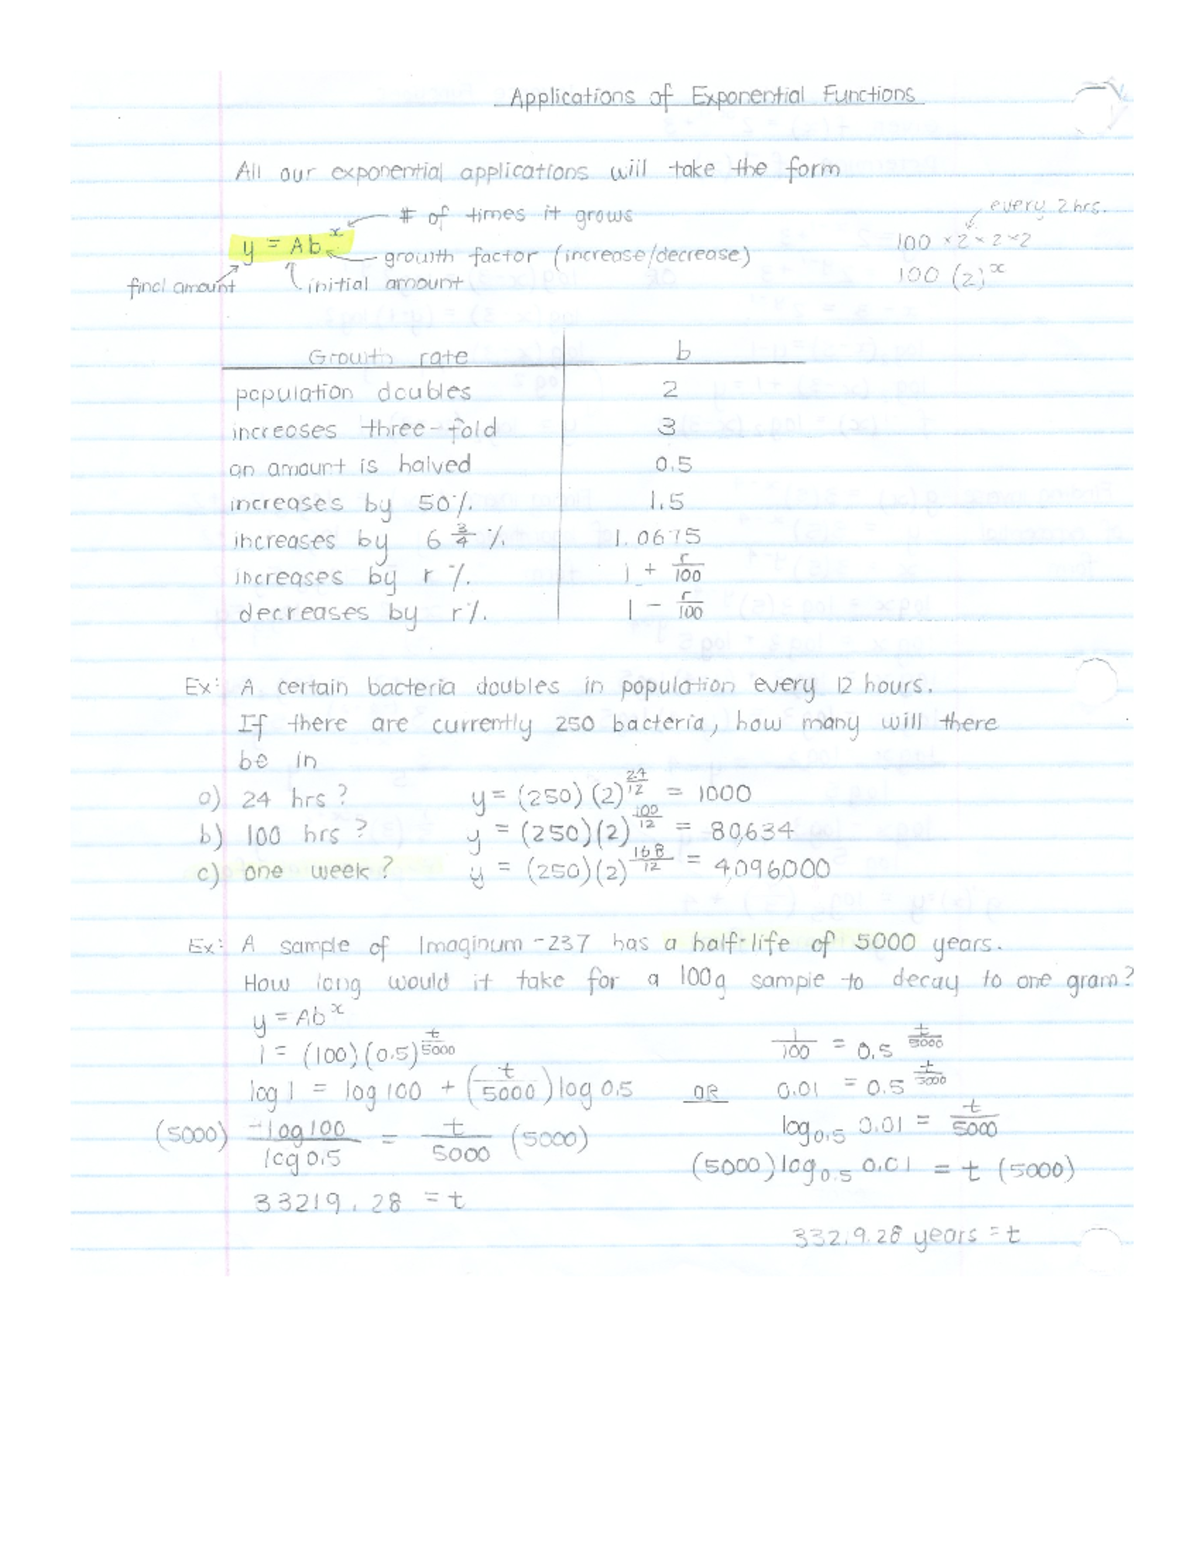 Applications of Exponential Functions
All our exponential applications will take the form
# of times it grows
every 2 hrs.
y = Ab^x
growth factor (increase/decrease)
100 × 2 × 2 × 2
final amount
initial amount
100 (2)^x
Growth rate | b
population doubles | 2
increases three-fold | 3
an amount is halved | 0.5
increases by 50% | 1.5
increases by 6 3/4 % | 1.0675
increases by r % | 1 + r/100
decreases by r% | 1 - r/100
Ex: A certain bacteria doubles in population every 12 hours.
If there are currently 250 bacteria, how many will there
be in
a) 24 hrs? y = (250)(2)^(24/12) = 1000
b) 100 hrs? y = (250)(2)^(100/12) = 80,634
c) one week? y = (250)(2)^(168/12) = 4,096,000
Ex: A sample of Imaginum-237 has a half-life of 5000 years.
How long would it take for a 100g sample to decay to one gram?
y = Ab^x
1 = (100)(0.5)^(t/5000)
log 1 = log 100 + (t/5000) log 0.5
(5000) -log 100/log 0.5 = t/5000 (5000)
33219.28 = t
OR
1/100 = 0.5^(t/5000)
0.01 = 0.5^(t/5000)
log_0.5 0.01 = t/5000
(5000) log_0.5 0.01 = t (5000)
33219.28 years = t